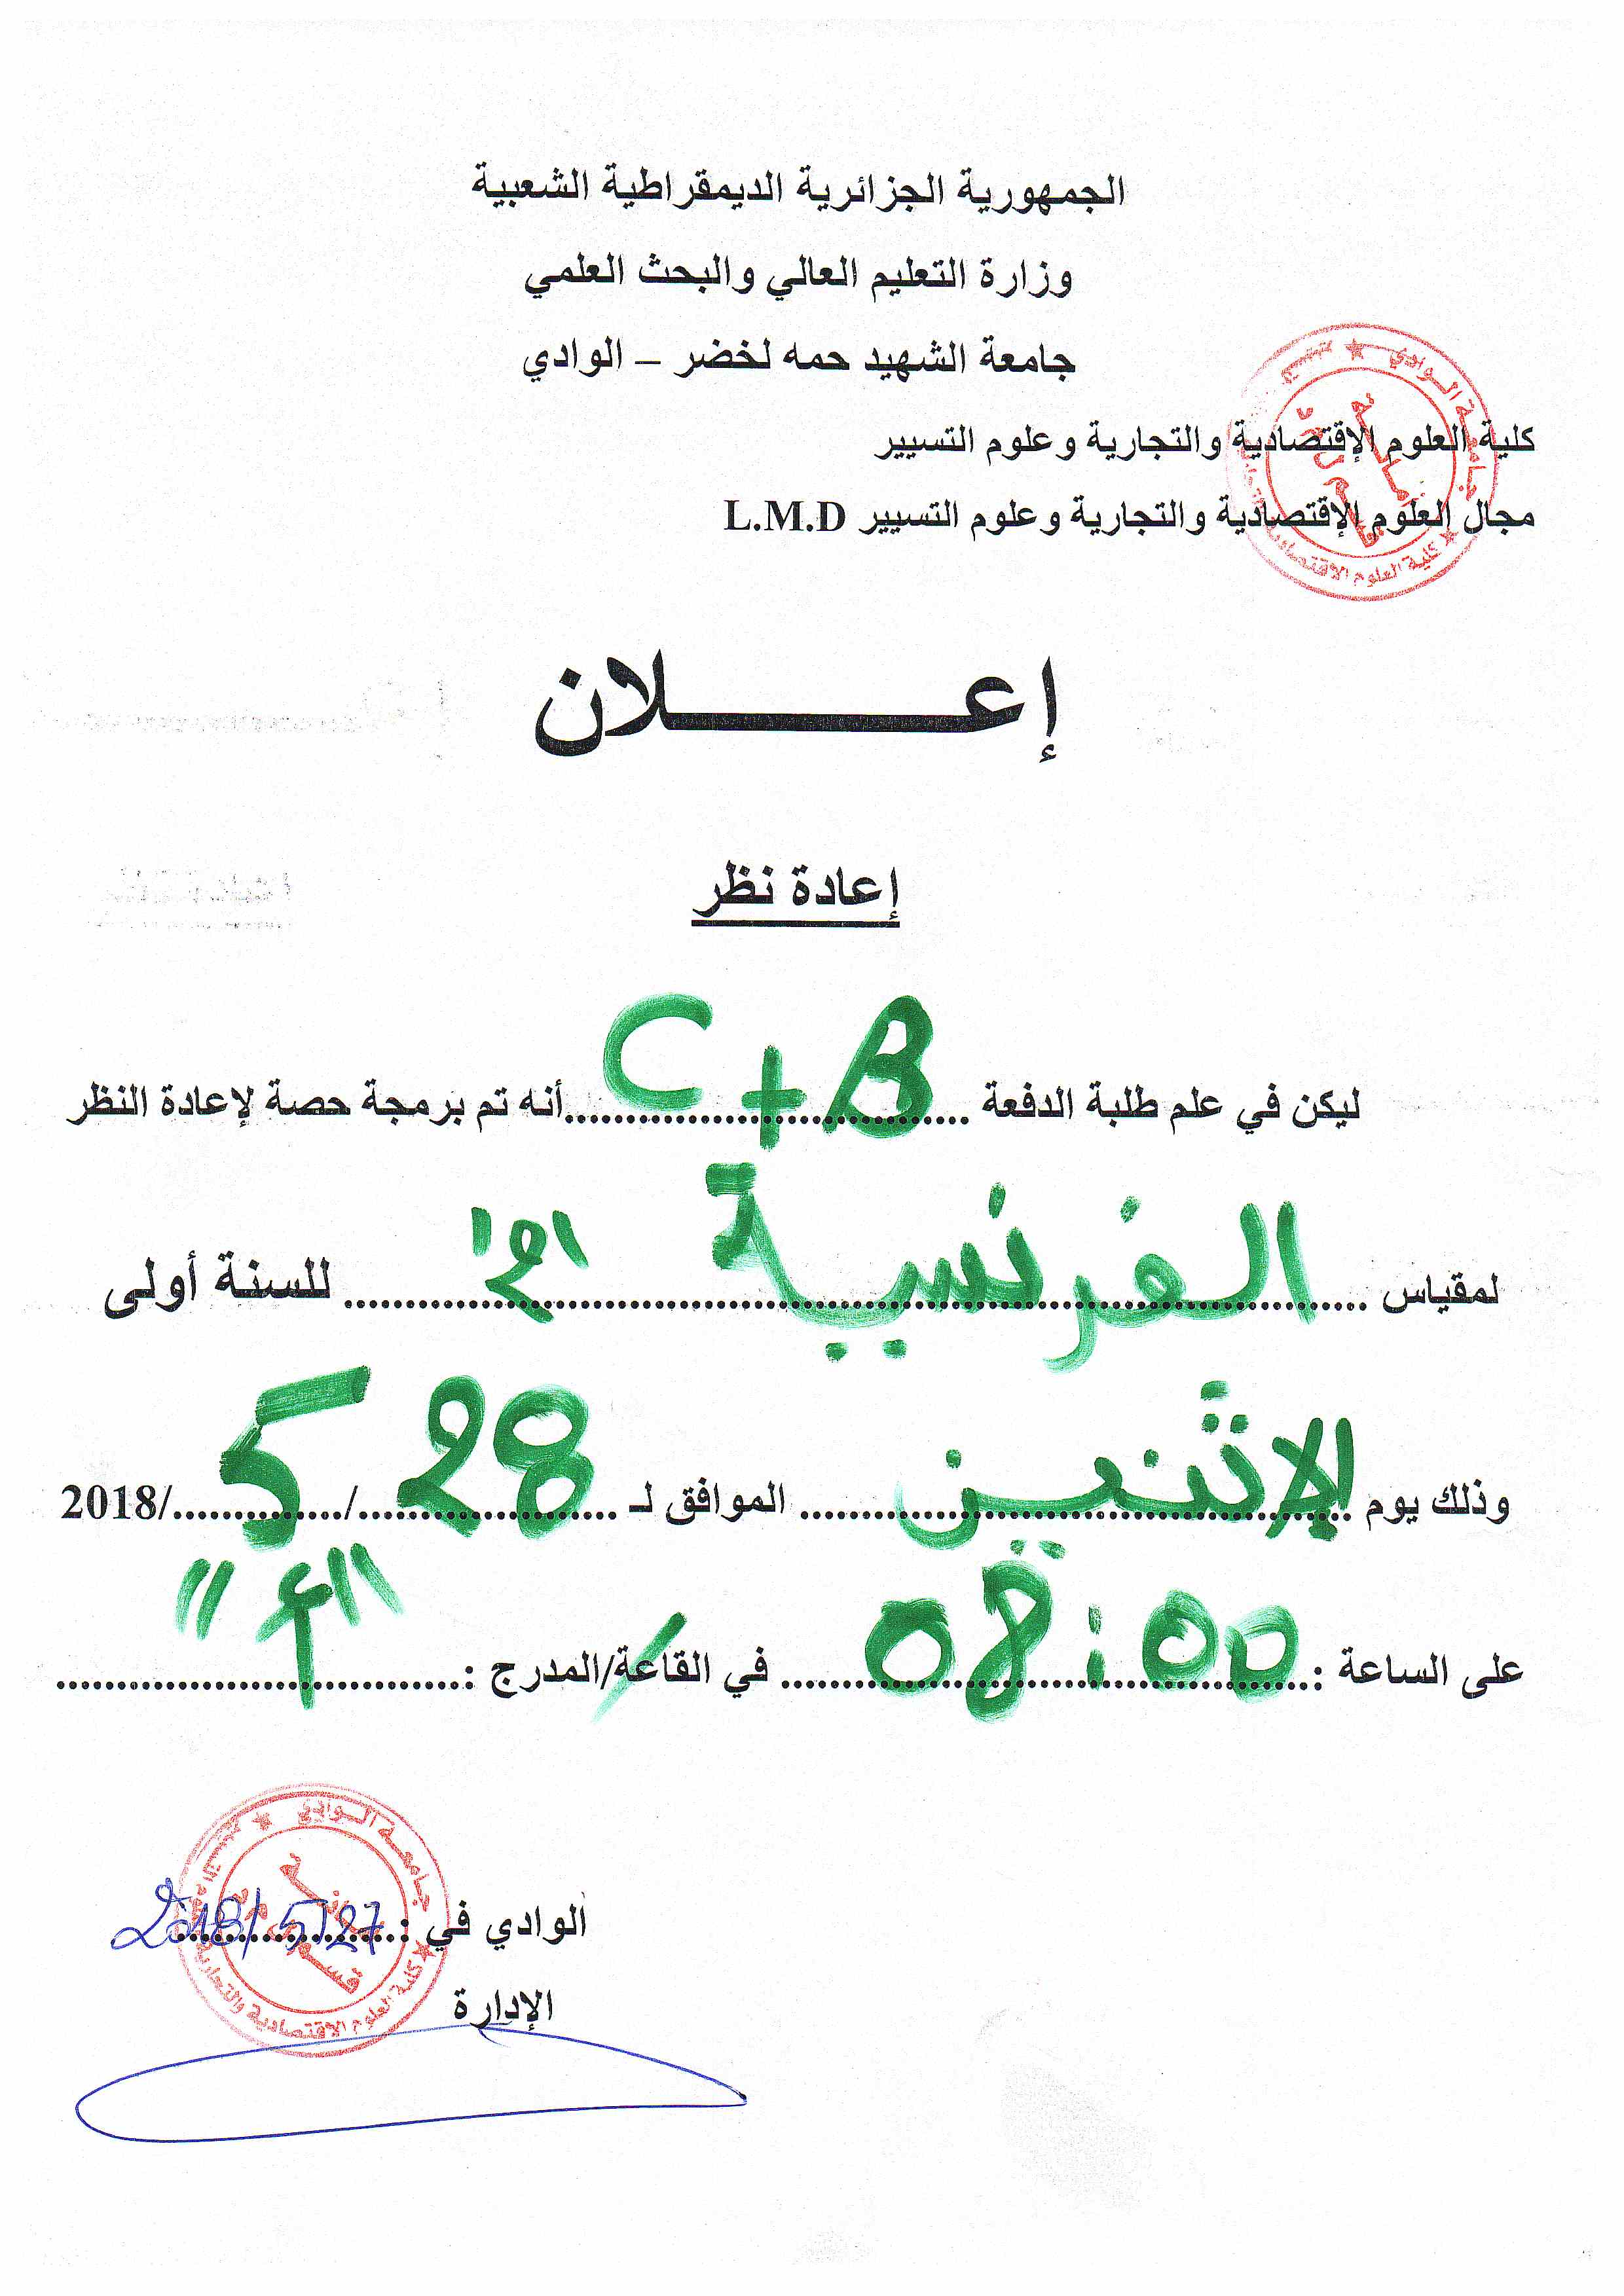 الجمهورية الجزائرية الديمقراطية الشعبية
وزارة التعليم العالي والبحث العلمي
جامعة الشهيد حمه لخضر – الوادي
كلية العلوم الإقتصادية والتجارية وعلوم التسيير
مجال العلوم الإقتصادية والتجارية وعلوم التسيير L.M.D
إعـــــــــلان
إعادة نظر
ليكن في علم طلبة الدفعة C + B أنه تم برمجة حصة لإعادة النظر
لمقياس الفرنسية "2" للسنة أولى
وذلك يوم الاثنين الموافق لـ 28/5/2018
على الساعة : 08:00 في القاعة/المدرج : "أ"
الوادي في : 2018/5/27
الإدارة
جامعة الوادي
كلية العلوم الاقتصادية والتجارية